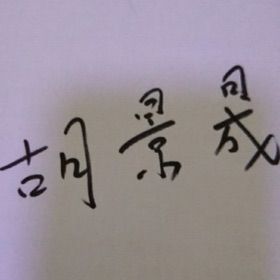 胡景晟